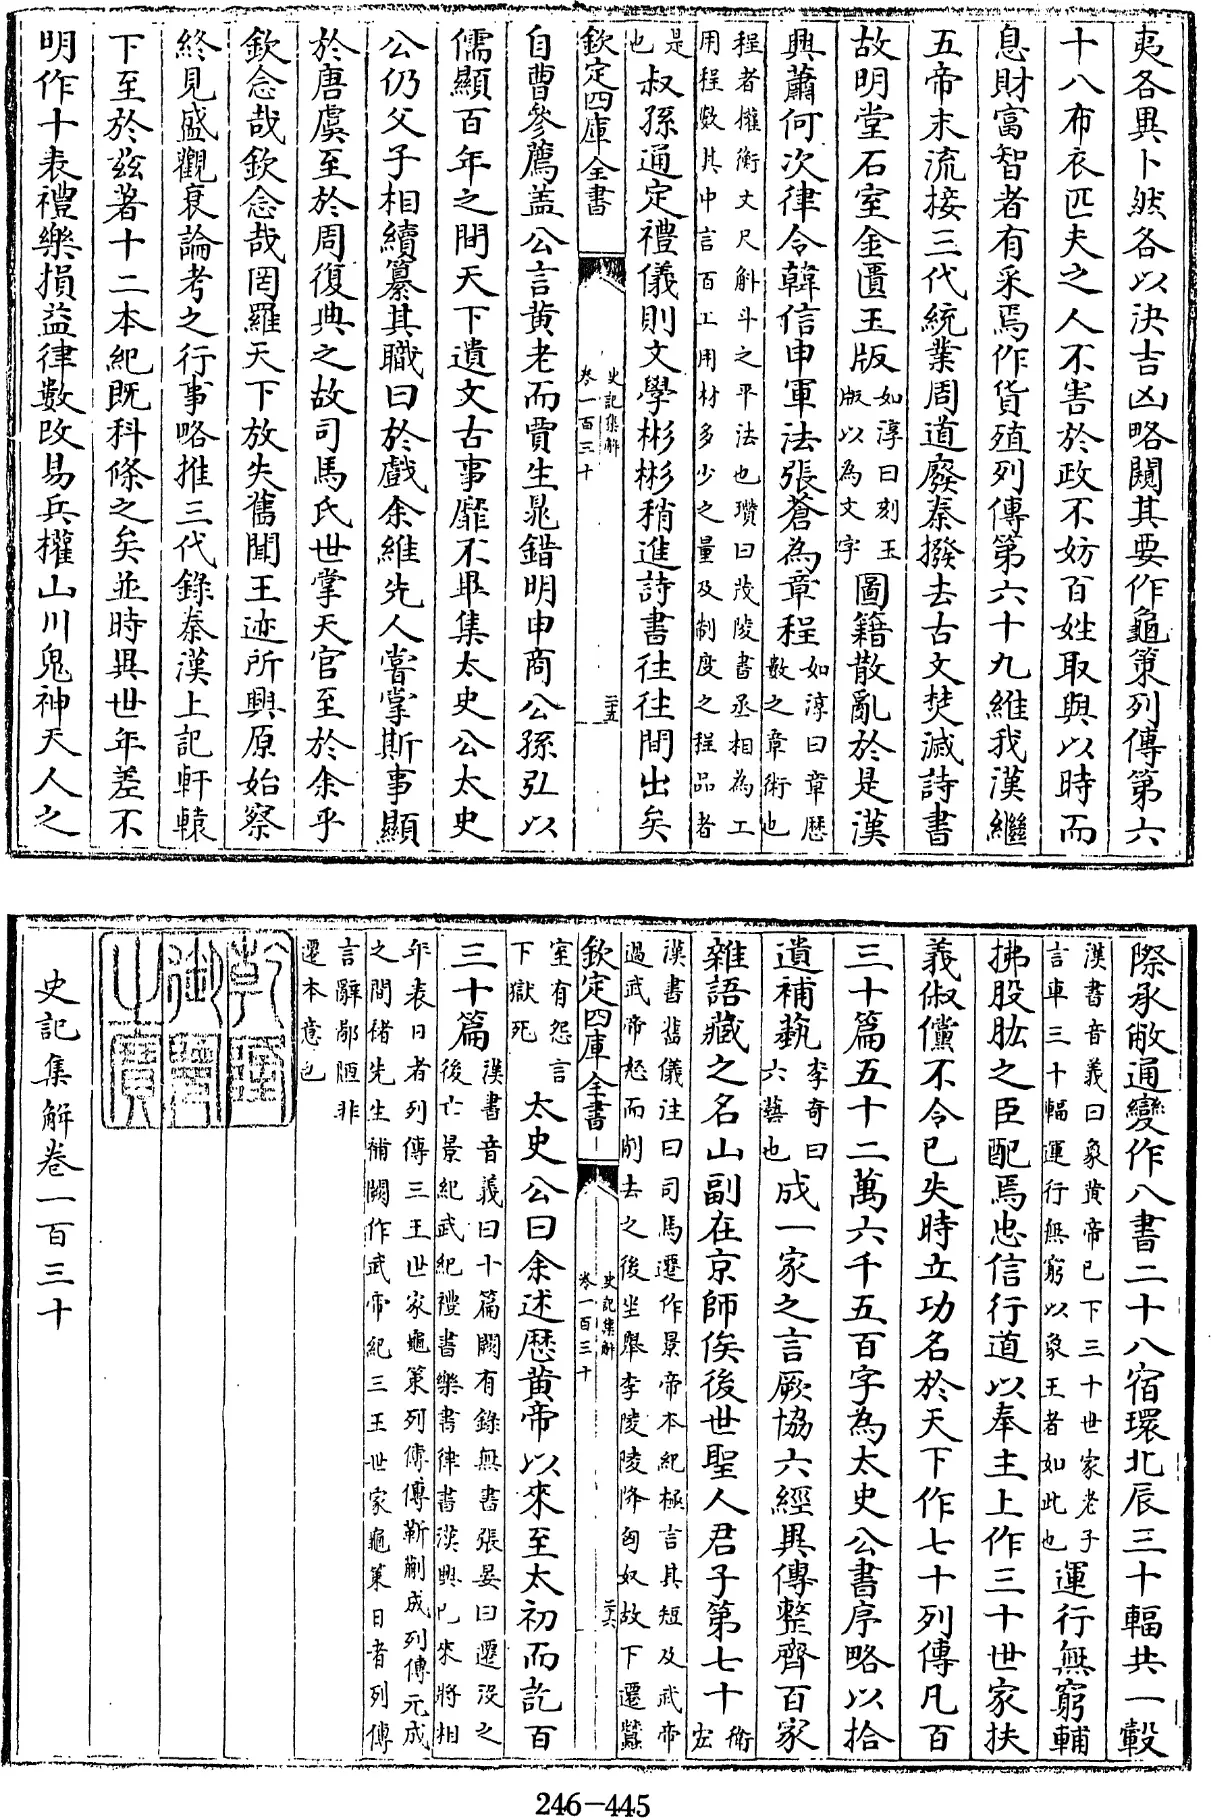 夷各異卜然各以決吉凶略闚其要作龜策列傳第六
十八布衣匹夫之人不害於政不妨百姓取與以時而
息財富智者有采焉作貨殖列傳第六十九維我漢繼
五帝末流接三代統業周道廢秦撥去古文焚滅詩書
故明堂石室金匱玉版如淳曰刻玉版以為文字圖籍散亂於是漢
興蕭何次律令韓信申軍法張蒼為章程如淳曰章歷數之章術也
程者權衡丈尺斛斗之平法也瓚曰茂陵書丞相為工
用程數其中言百工用材多少之量及制度之程品者
是也叔孫通定禮儀則文學彬彬稍進詩書往往間出矣
欽定四庫全書
史記集解
卷一百三十
二十五
自曹參薦蓋公言黄老而賈生晁錯明申商公孫弘以
儒顯百年之間天下遺文古事靡不畢集太史公太史
公仍父子相續纂其職曰於戲余維先人嘗掌斯事顯
於唐虞至於周復典之故司馬氏世掌天官至於余乎
欽念哉欽念哉罔羅天下放失舊聞王迹所興原始察
終見盛觀衰論考之行事略推三代錄秦漢上記軒轅
下至於兹著十二本紀既科條之矣並時異世年差不
明作十表禮樂損益律數改易兵權山川鬼神天人之
際承敝通變作八書二十八宿環北辰三十輻共一轂
漢書音義曰象黄帝已下三十世家老子言車三十輻運行無窮以象王者如此也運行無窮輔
拂股肱之臣配焉忠信行道以奉主上作三十世家扶
義俶儻不令已失時立功名於天下作七十列傳凡百
三十篇五十二萬六千五百字為太史公書序略以拾
遺補藝李奇曰六藝也成一家之言厥協六經異傳整齊百家
雜語藏之名山副在京師俟後世聖人君子第七十衛宏
漢書舊儀注曰司馬遷作景帝本紀極言其短及武帝
過武帝怒而削去之後坐舉李陵陵降匈奴故下遷蠶
欽定四庫全書
史記集解
卷一百三十
二十六
室有怨言下獄死太史公曰余述歷黄帝以來至太初而訖百
三十篇漢書音義曰十篇闕有錄無書張晏曰遷沒之後亡景紀武紀禮書樂書律書漢興已來將相
年表日者列傳三王世家龜策列傳傅靳蒯成列傳元成
之間禇先生補闕作武帝紀三王世家龜策日者列傳
言辭鄙陋非遷本意也
乾隆
御覽
之寶
史記集解卷一百三十
246-445